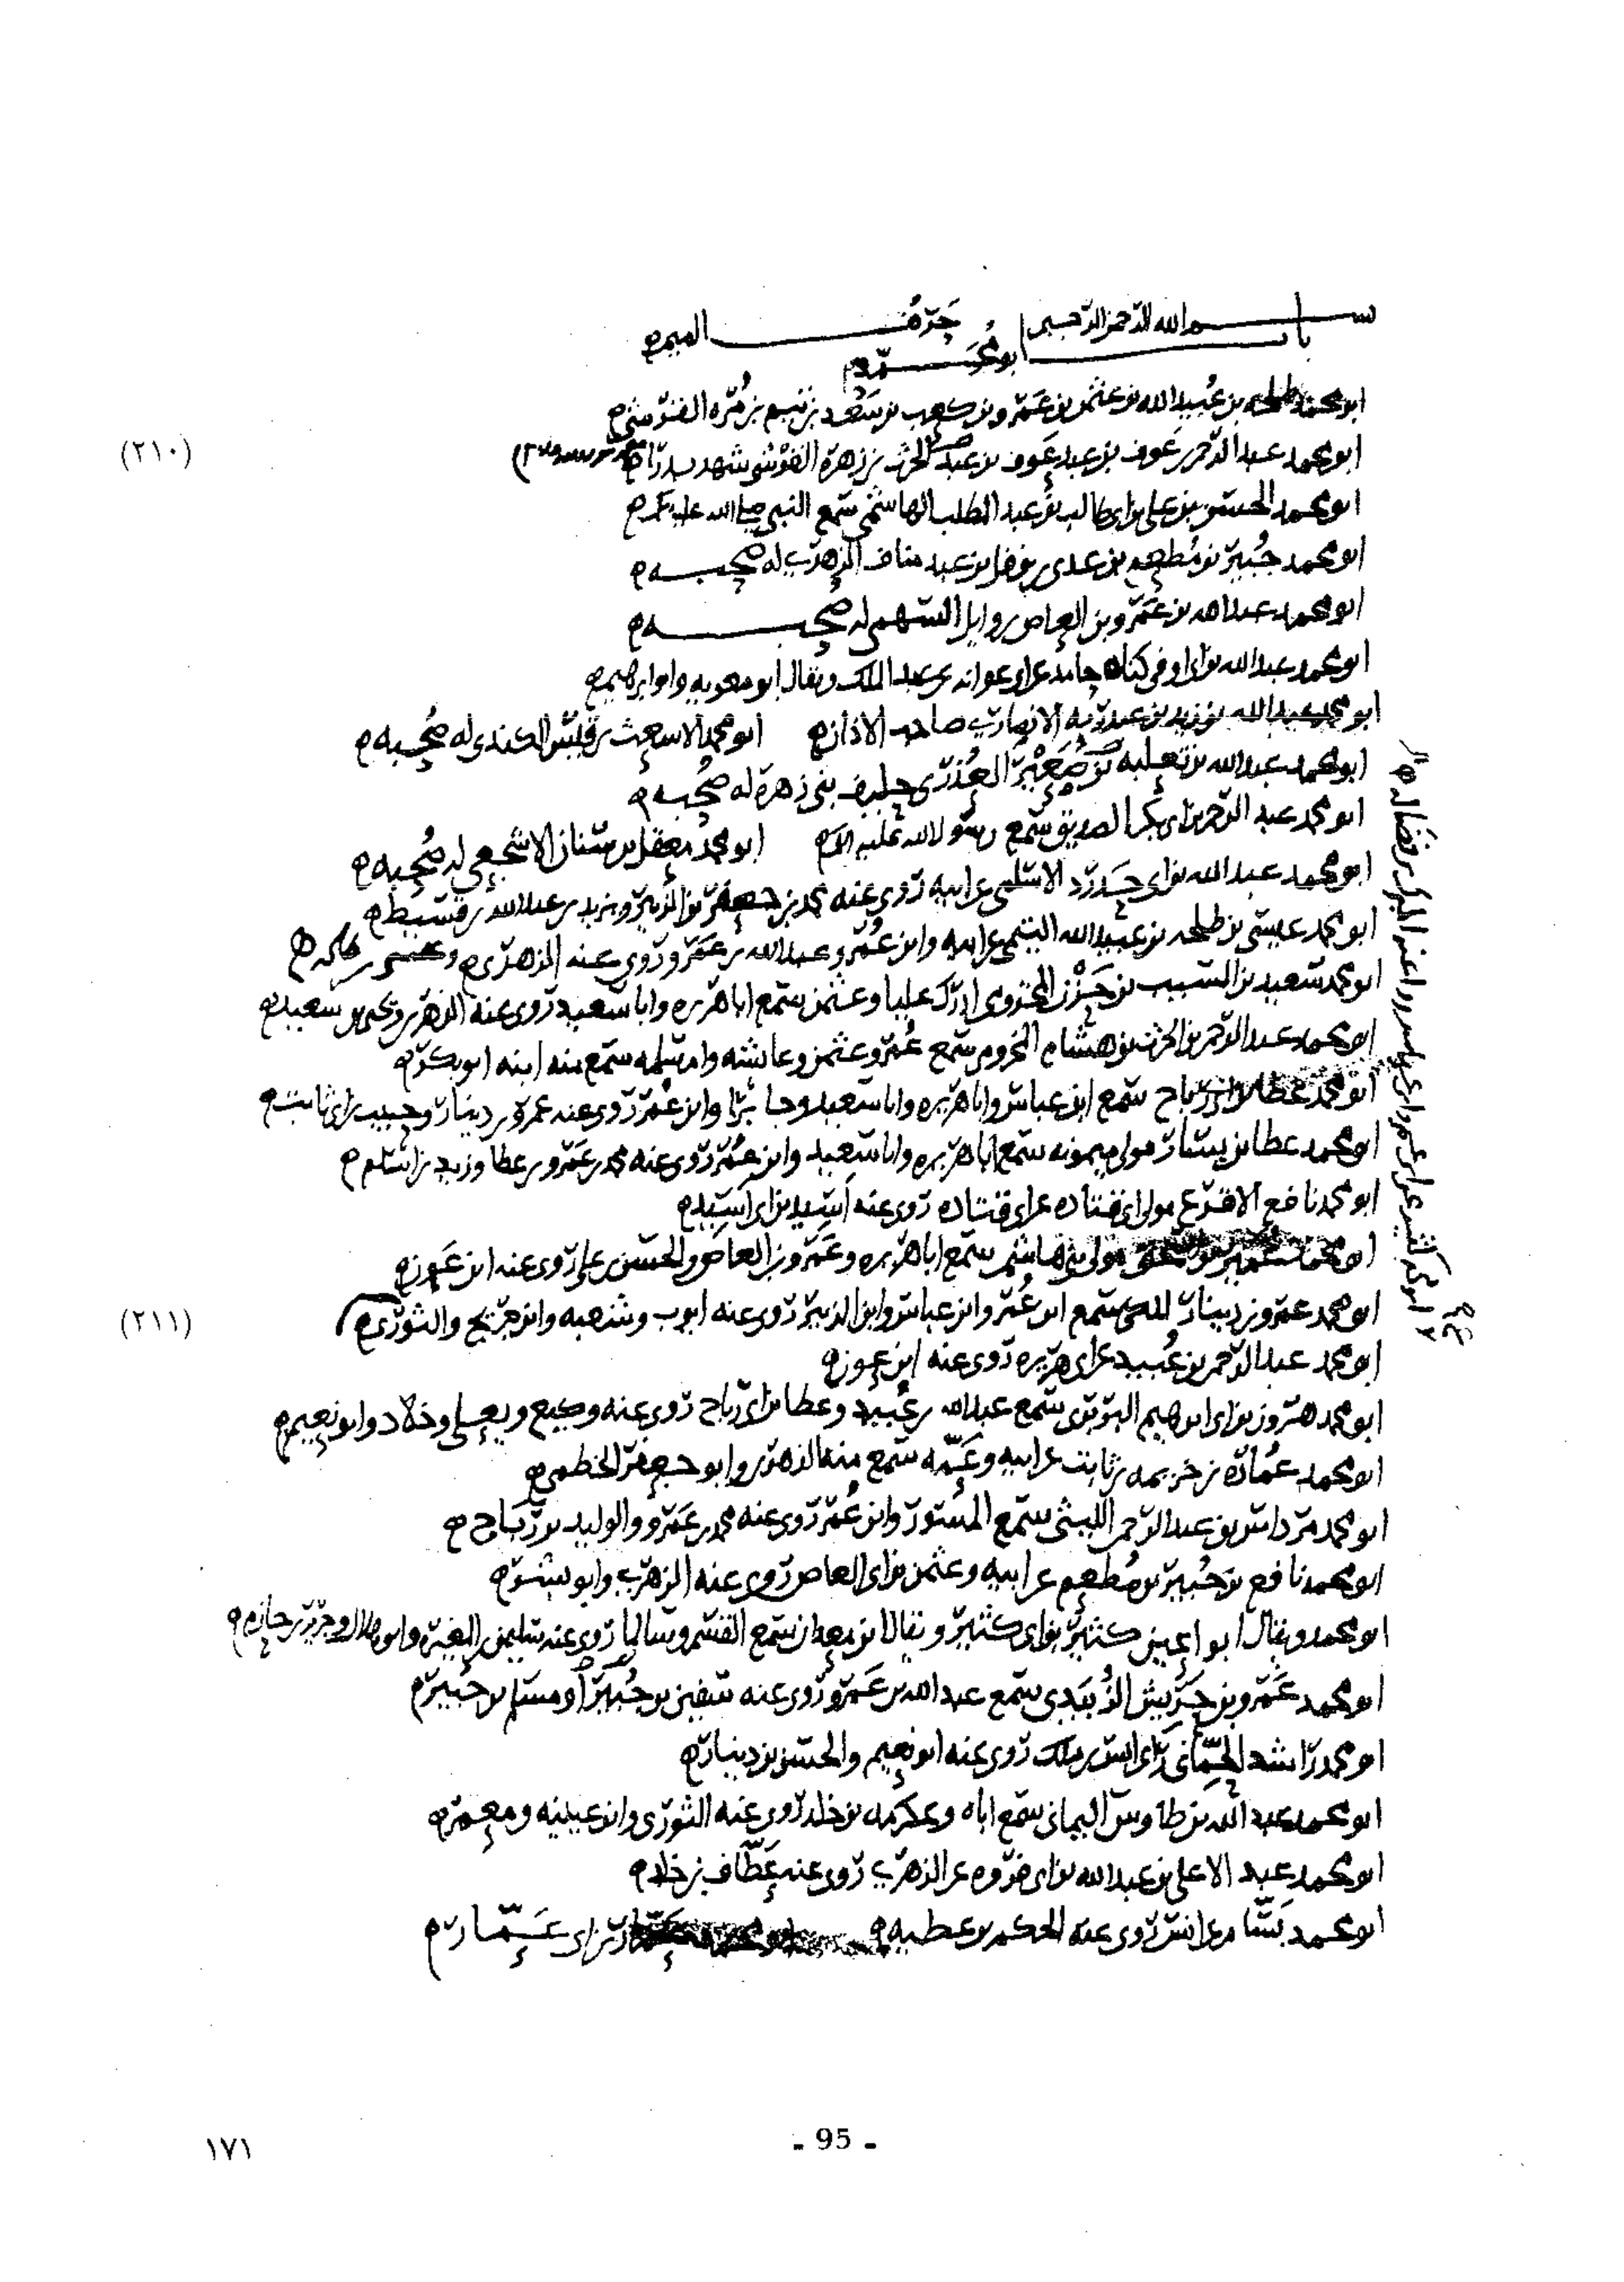 بسم الله الرحمن الرحيم حرف الميم
باب ابو محمد
ابو محمد طلحه بن عبيد الله بن عثمن بن عمرو بن كعب بن سعد بن تيم بن مره القرشي
(٢١٠)
ابو محمد عبد الرحمن بن عوف بن عبد عوف بن عبد بن الحرث بن زهرة القرشي شهد بدرا
ابو محمد الحسن بن علي بن ابي طالب بن عبد المطلب الهاشمي سمع النبي صلى الله عليه
ابو محمد جبير بن مطعم بن عدي بن نوفل بن عبد مناف الزهري له صحبه
ابو محمد عبد الله بن عمرو بن العاص بن وايل السهمي له صحبه
ابو محمد عبد الله بن ابي اوفى كناه حامد عن ابي عوانه عن عبد الملك ويقال ابو معويه وابو ابرهيم
ابو محمد عبد الله بن زيد بن عبد ربه الانصاري صاحب الاذان ابو محمد الاشعث بن قيس الكندي له صحبه
ابو محمد عبد الله بن ثعلبه بن صعير العذري حليف بني زهرة له صحبه
ابو محمد عبد الرحمن بن ابي بكر الصديق سمع رسول الله عليه ابو محمد معقل بن سنان الاشجعي له صحبه
ابو محمد عبد الله بن ابي حدرد الاسلمي عن ابيه روى عنه محمد بن جعفر بن الزبير ويزيد بن عبد الله بن قسيط
ابو محمد عيسى بن طلحه بن عبيد الله التيمي عن ابيه وابن عمر وعبد الله بن عمرو روى عنه الزهري
ابو محمد سعيد بن المسيب بن حزن المخزومي ادرك عليا وعثمن سمع ابا هريره وابا سعيد روى عنه الزهري ويحيى بن سعيد
ابو محمد عبد الرحمن بن الحرث بن هشام المخزومي سمع عمر وعثمن وعائشه وام سلمه سمع منه ابنه ابو بكر
ابو محمد عطا بن ابي رباح سمع ابن عباس وابا هريره وابا سعيد وجابرا وابن عمر روى عنه عمرو بن دينار وحبيب بن ابي ثابت
ابو محمد عطا بن يسار مولى ميمونه سمع ابا هريره وابا سعيد وابن عمر روى عنه محمد بن عمرو بن عطا وزيد بن اسلم
ابو محمد نافع الاقرع مولى ابي قتاده عن ابي قتاده روى عنه اسيد بن ابي اسيد
ابو محمد عمير بن اسحق مولى بني هاشم سمع ابا هريره وعمرو بن العاص والحسن بن علي روى عنه ابن عون
ابو محمد عمرو بن دينار المكي سمع ابن عمر وابن عباس وابن الزبير روى عنه ايوب وشعبه وابن جريج والثوري
(٢١١)
ابو محمد عبد الرحمن بن عبيد عن ابي هريره روى عنه ابن عون
ابو محمد هرون بن ابي ابرهيم البربري سمع عبد الله بن عبيد وعطا بن ابي رباح روى عنه وكيع ويعلى وخلاد وابو نعيم
ابو محمد عماره بن خزيمه بن ثابت عن ابيه وعمه سمع منه الزهري وابو جعفر الخطمي
ابو محمد مرداس بن عبد الرحمن الليثي سمع المستورد وابن عمر روى عنه محمد بن عمرو والوليد بن رباح
ابو محمد نافع بن جبير بن مطعم عن ابيه وعثمن بن ابي العاص روى عنه الزهري وابو بشر
ابو محمد ويقال ابو اعين كثير بن ابي كثير ويقال ابن معدان سمع القسم وسالما روى عنه سليمن بن المغيره وابو هلال وجرير بن حازم
ابو محمد عمرو بن حريش الزبيدي سمع عبد الله بن عمرو روى عنه سفين بن جبير او مسلم بن جبير
ابو محمد راشد الحماني راى انس بن ملك روى عنه ابو نعيم والحسن بن دينار
ابو محمد عبد الله بن طاوس اليماني سمع اباه وعكرمه بن خلد روى عنه الثوري وابن عيينه ومعمر
ابو محمد عبد الاعلى بن عبد الله بن ابي فروه عن الزهري روى عنه عطاف بن خلد
ابو محمد بسام عن انس روى عنه الحكم بن عطيه بن ابي عمار
١٧١
- 95 -